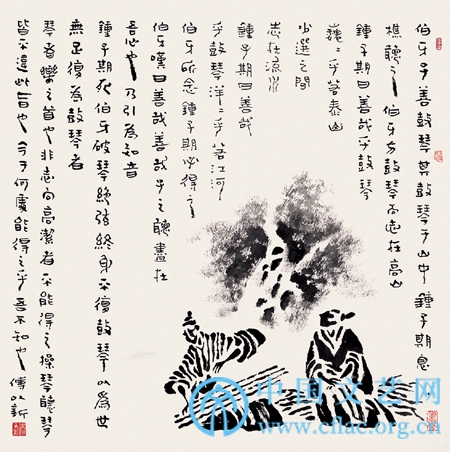 伯牙子善鼓琴其鼓琴于山中鍾子期息
樵聽之伯牙方鼓琴而志在高山
鍾子期曰善哉乎鼓琴
巍々乎若泰山
少選之間
志在流水
鍾子期曰善哉
乎鼓琴洋々乎若江河
伯牙所念鍾子期必得之
伯牙嘆曰善哉善哉子之聽盡在
吾心也乃引為知音
鍾子期死伯牙破琴絶弦終身不復鼓琴以爲世
無足復為鼓琴者
琴者樂之首也非志向高潔者不能得之操琴聽琴
皆不違此旨也今于何處能得之乎吾不知也 傅以新
中国文艺网
www.cflac.org.cn